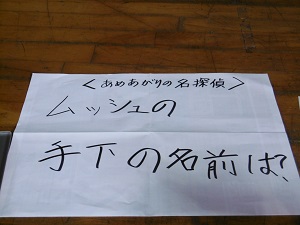 〈あめあがりの名探偵〉
ムッシュの
手下の名前は?